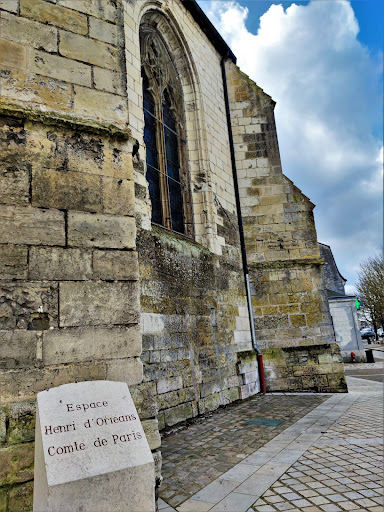 Espace
Henri d'Orléans
Comte de Paris